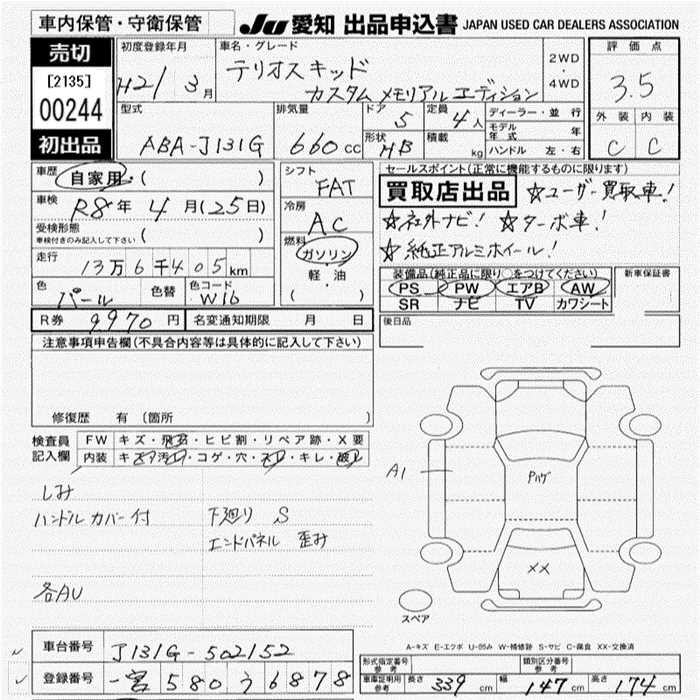 車内保管・守衛保管
JU 愛知 出品申込書 JAPAN USED CAR DEALERS ASSOCIATION
売切
[2135]
00244
初出品
初度登録年月
H21 / 3月
車名・グレード
テリオスキッド
カスタムメモリアルエディション
2WD
・
4WD
評価点
3.5
外装 内装
C C
型式
ABA-J131G
排気量
660cc
ドア
5
定員
4人
形状
HB
積載
kg
ディーラー・並行
モデル年式 年
ハンドル 左・右
車歴
自家用・( )
車検
R8年 4月(25日)
受検形態
車検付きのみ記入して下さい ( )
走行
13万6千405km
色
パール
色替
色コード
W16
シフト
FAT
冷房
AC
燃料
ガソリン・
軽・油
( )
セールスポイント(正常に機能するものに限ります)
買取店出品 ☆ユーザー買取車!
☆社外ナビ! ☆ターボ車!
☆純正アルミホイール!
装備品(純正品に限り○をつけてください)
PS PW エアB AW
SR ナビ TV カワシート
新車保証書
後日品
R券 9,970円 名変通知期限 月 日
注意事項申告欄(不具合内容等は具体的に記入して下さい)
修復歴 有 〔箇所 〕
検査員記入欄
FW キズ・飛石・ヒビ割・リペア跡・X要
内装 キズ・汚れ・コゲ・穴・スレ・キレ・破れ
しみ
ハンドルカバー付 下廻り S
エンドパネル 歪み
各AU
A1
Pハゲ
XX
スペア
A-キズ E-エクボ U-凹み W-補修跡 S-サビ C-腐食 XX-交換済
車台番号 J131G-502152
登録番号 一宮 580 う 6878
形式指定番号
参考
類別区分番号
参考
車庫証明用
参考
長さ 339cm 幅 147cm 高さ 174cm